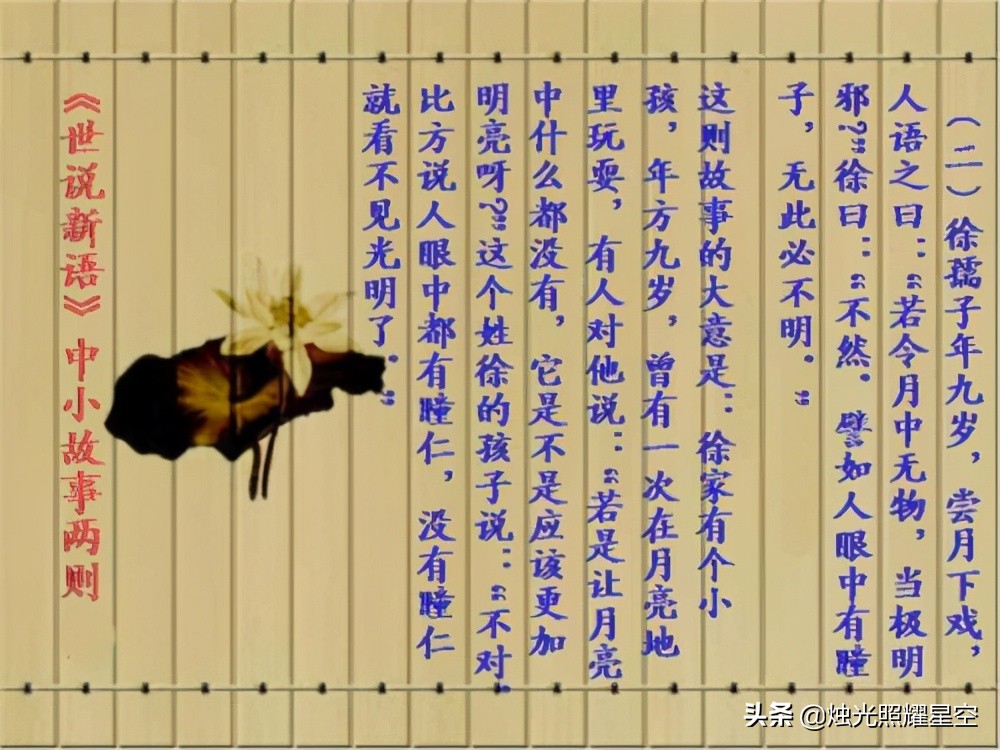 （二）徐孺子年九岁，尝月下戏，
人语之曰：“若令月中无物，当极明
邪？”徐曰：“不然。譬如人眼中有瞳
子，无此必不明。”
这则故事的大意是：徐家有个小
孩，年方九岁，曾有一次在月亮地
里玩耍，有人对他说：“若是让月亮
中什么都没有，它是不是应该更加
明亮呀？”这个姓徐的孩子说：“不对，
比方说人眼中都有瞳仁，没有瞳仁
就看不见光明了。”
《世说新语》中小故事两则
头条 @烛光照耀星空